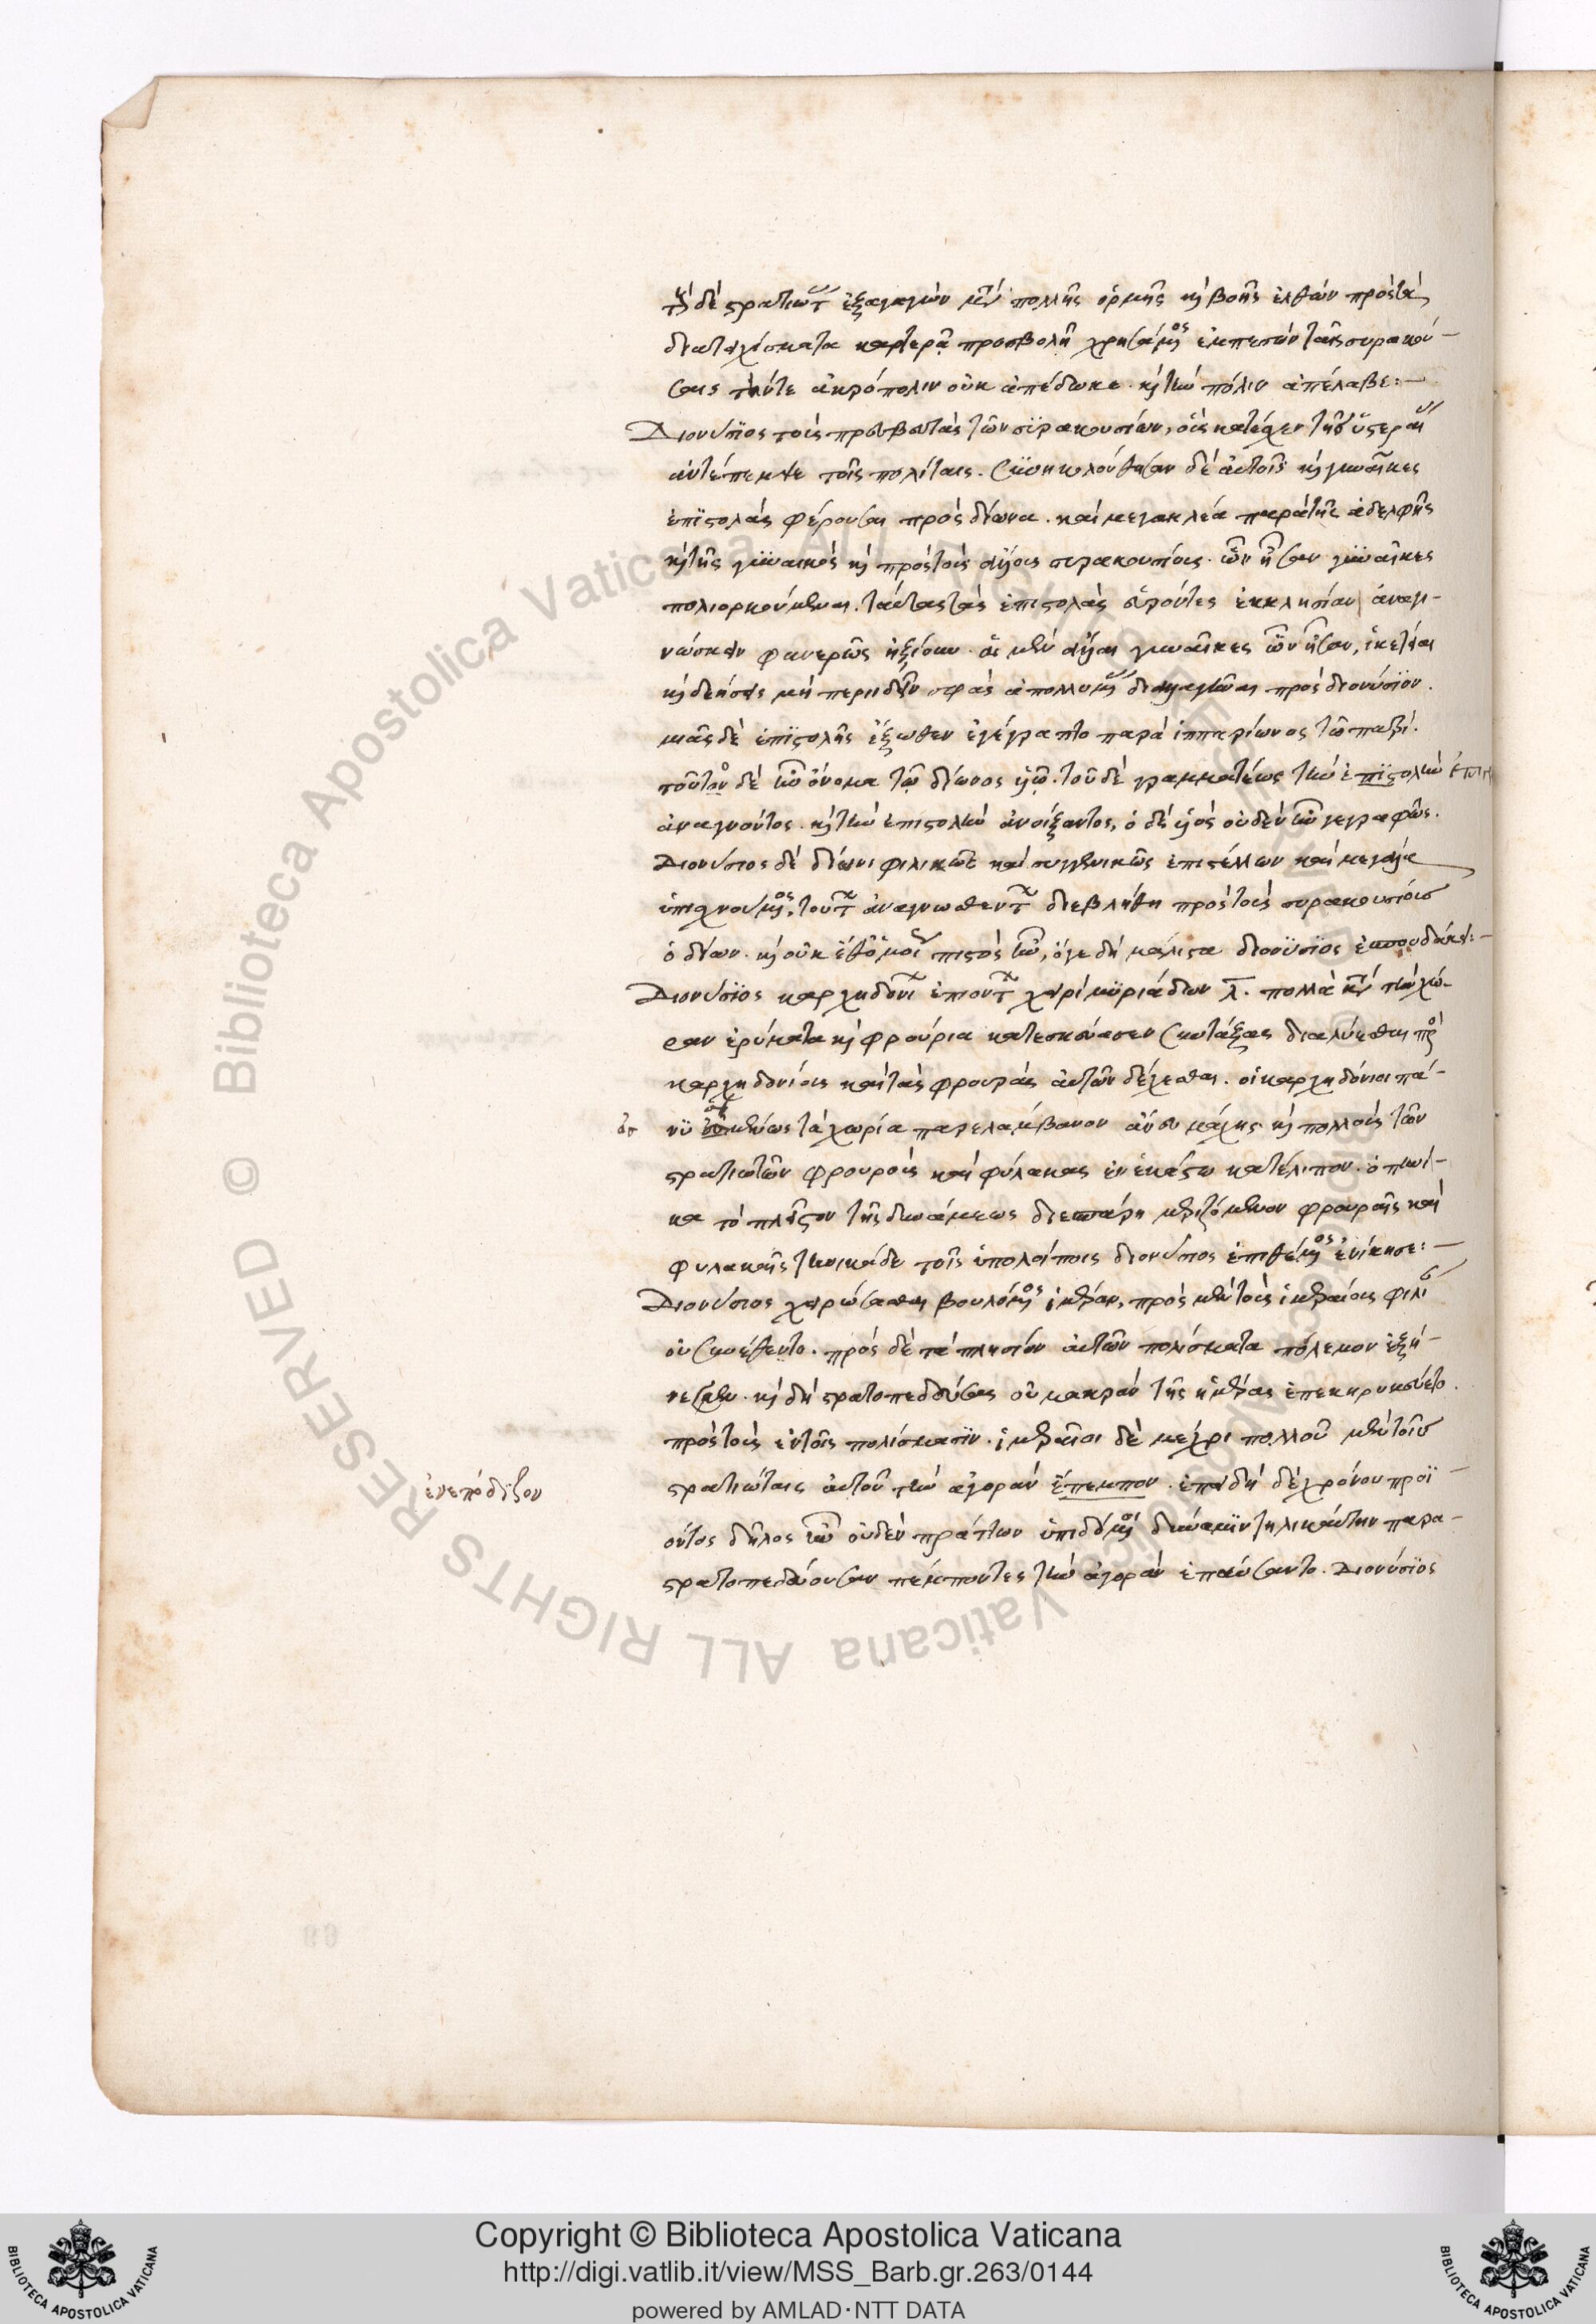 τοὺς δὲ στρατιώτας ἐξαγαγὼν μετὰ πολλῆς ὁρμῆς καὶ βοῆς ἐλθὼν πρὸς τὰ
διατειχίσματα καρτερᾷ προσβολῇ χρησάμενος ἐμπεσὼν ταῖς συρακού-
σαις τήν τε ἀκρόπολιν οὐκ ἀπέδωκε. καὶ τὴν πόλιν ἀπέλαβε:-
Διονύσιος τοὺς πρεσβευτὰς τῶν συρακουσίων, οὓς κατέσχεν τῆς ὑστεραίας
ἀντέπεμψε τοῖς πολίταις. συνηκολούθησαν δὲ αὐτοῖς καὶ γυναῖκες
ἐπιστολὰς φέρουσαι πρὸς δίωνα. καὶ μεγακλέα παρὰ τῆς ἀδελφῆς
καὶ τῆς γυναικὸς καὶ πρὸς τοὺς ἄλλους συρακουσίους. ὧν ἦσαν γυναῖκες
πολιορκούμεναι. ταύτας τὰς ἐπιστολὰς εὑρόντες ἐκκλησίαν ἀναγι-
νώσκειν φανερῶς ἠξίουν. αἱ μὲν ἄλλαι γυναῖκες ὧν ἦσαν, ἱκετεῖαι
καὶ δεήσεις μὴ περιιδεῖν σφᾶς ἀπολλυμένας διαλλαγῶναι πρὸς διονύσιον.
μιᾶς δὲ ἐπιστολῆς ἔξωθεν ἐγέγραπτο παρὰ ἱππαρίωνος τῷ πατρί.
τοῦτο δὲ ἦν ὄνομα τῷ δίωνος υἱῷ. τοῦ δὲ γραμματέως τὴν ἐπιστολὴν
ἀναγνόντος. καὶ τὴν ἐπιστολὴν ἀνοίξαντος, ὁ δὴ υἱὸς οὐδὲν ἦν γεγραφώς.
Διονύσιος δὲ δίωνι φιλικῶς καὶ συγγενικῶς ἐπιστέλλων καὶ μεγάλα
ὑπισχνούμενος. τούτων ἀναγνωσθέντων διεβλήθη πρὸς τοὺς συρακουσίους
ὁ δίων. καὶ οὐκ ἔθ' ὁμοίως πιστὸς ἦν, ὅγε δὴ μάλιστα διονύσιος ἐσπουδάκει:-
Διονύσιος καρχηδονίων ἐπιόντων χειρὶ μυριάδων λ. πολλὰ κατὰ τὴν χώ-
ραν ἐρύματα καὶ φρούρια κατεσκεύασεν συντάξας διαλύεσθαι πρὸς
καρχηδονίους καὶ τὰς φρουρὰς αὐτῶν δέχεσθαι. οἱ καρχηδόνιοι πά-
νυ ἀσμένως τὰ χωρία παρελάμβανον ἄνευ μάχης καὶ πολλοὺς τῶν
στρατιωτῶν φρουροὺς καὶ φύλακας ἐν ἑκάστῳ κατέλιπον. ὁπηνί-
κα τὸ πλεῖστον τῆς δυνάμεως διεσπάρη μεριζόμενον φρουραῖς καὶ
φυλακαῖς τηνικάδε τοῖς ὑπολοίποις διονύσιος ἐπιθέμενος ἐνίκησε:-
Διονύσιος χειρώσασθαι βουλόμενος ἱμέραν, πρὸς μὲν τοὺς ἱμεραίους φιλίαν
οὐ συνέθεντο. πρὸς δὲ τὰ πλησίον αὐτῶν πολίσματα πόλεμον ἐξή-
νεγκεν. καὶ δὴ στρατοπεδεύσας οὐ μακρὰν τῆς ἱμέρας ἐπεκηρυκεύετο.
πρὸς τοὺς ἐν τοῖς πολίσμασιν. ἱμεραῖοι δὲ μέχρι πολλοῦ μὲν τοῖς
στρατιώταις αὐτοῦ τὴν ἀγορὰν ἔπεμπον. ἐπειδὴ δὲ χρόνου προϊ-
όντος δῆλος ἦν οὐδὲν πράττων ὑπιδόμενοι δύναμιν τηλικαύτην παρα-
στρατοπεδεύουσαν πέμποντες τὴν ἀγορὰν ἐπαύσαντο. Διονύσιος
ἐνεπόδιζον
Copyright © Biblioteca Apostolica Vaticana
http://digi.vatlib.it/view/MSS_Barb.gr.263/0144
powered by AMLAD·NTT DATA